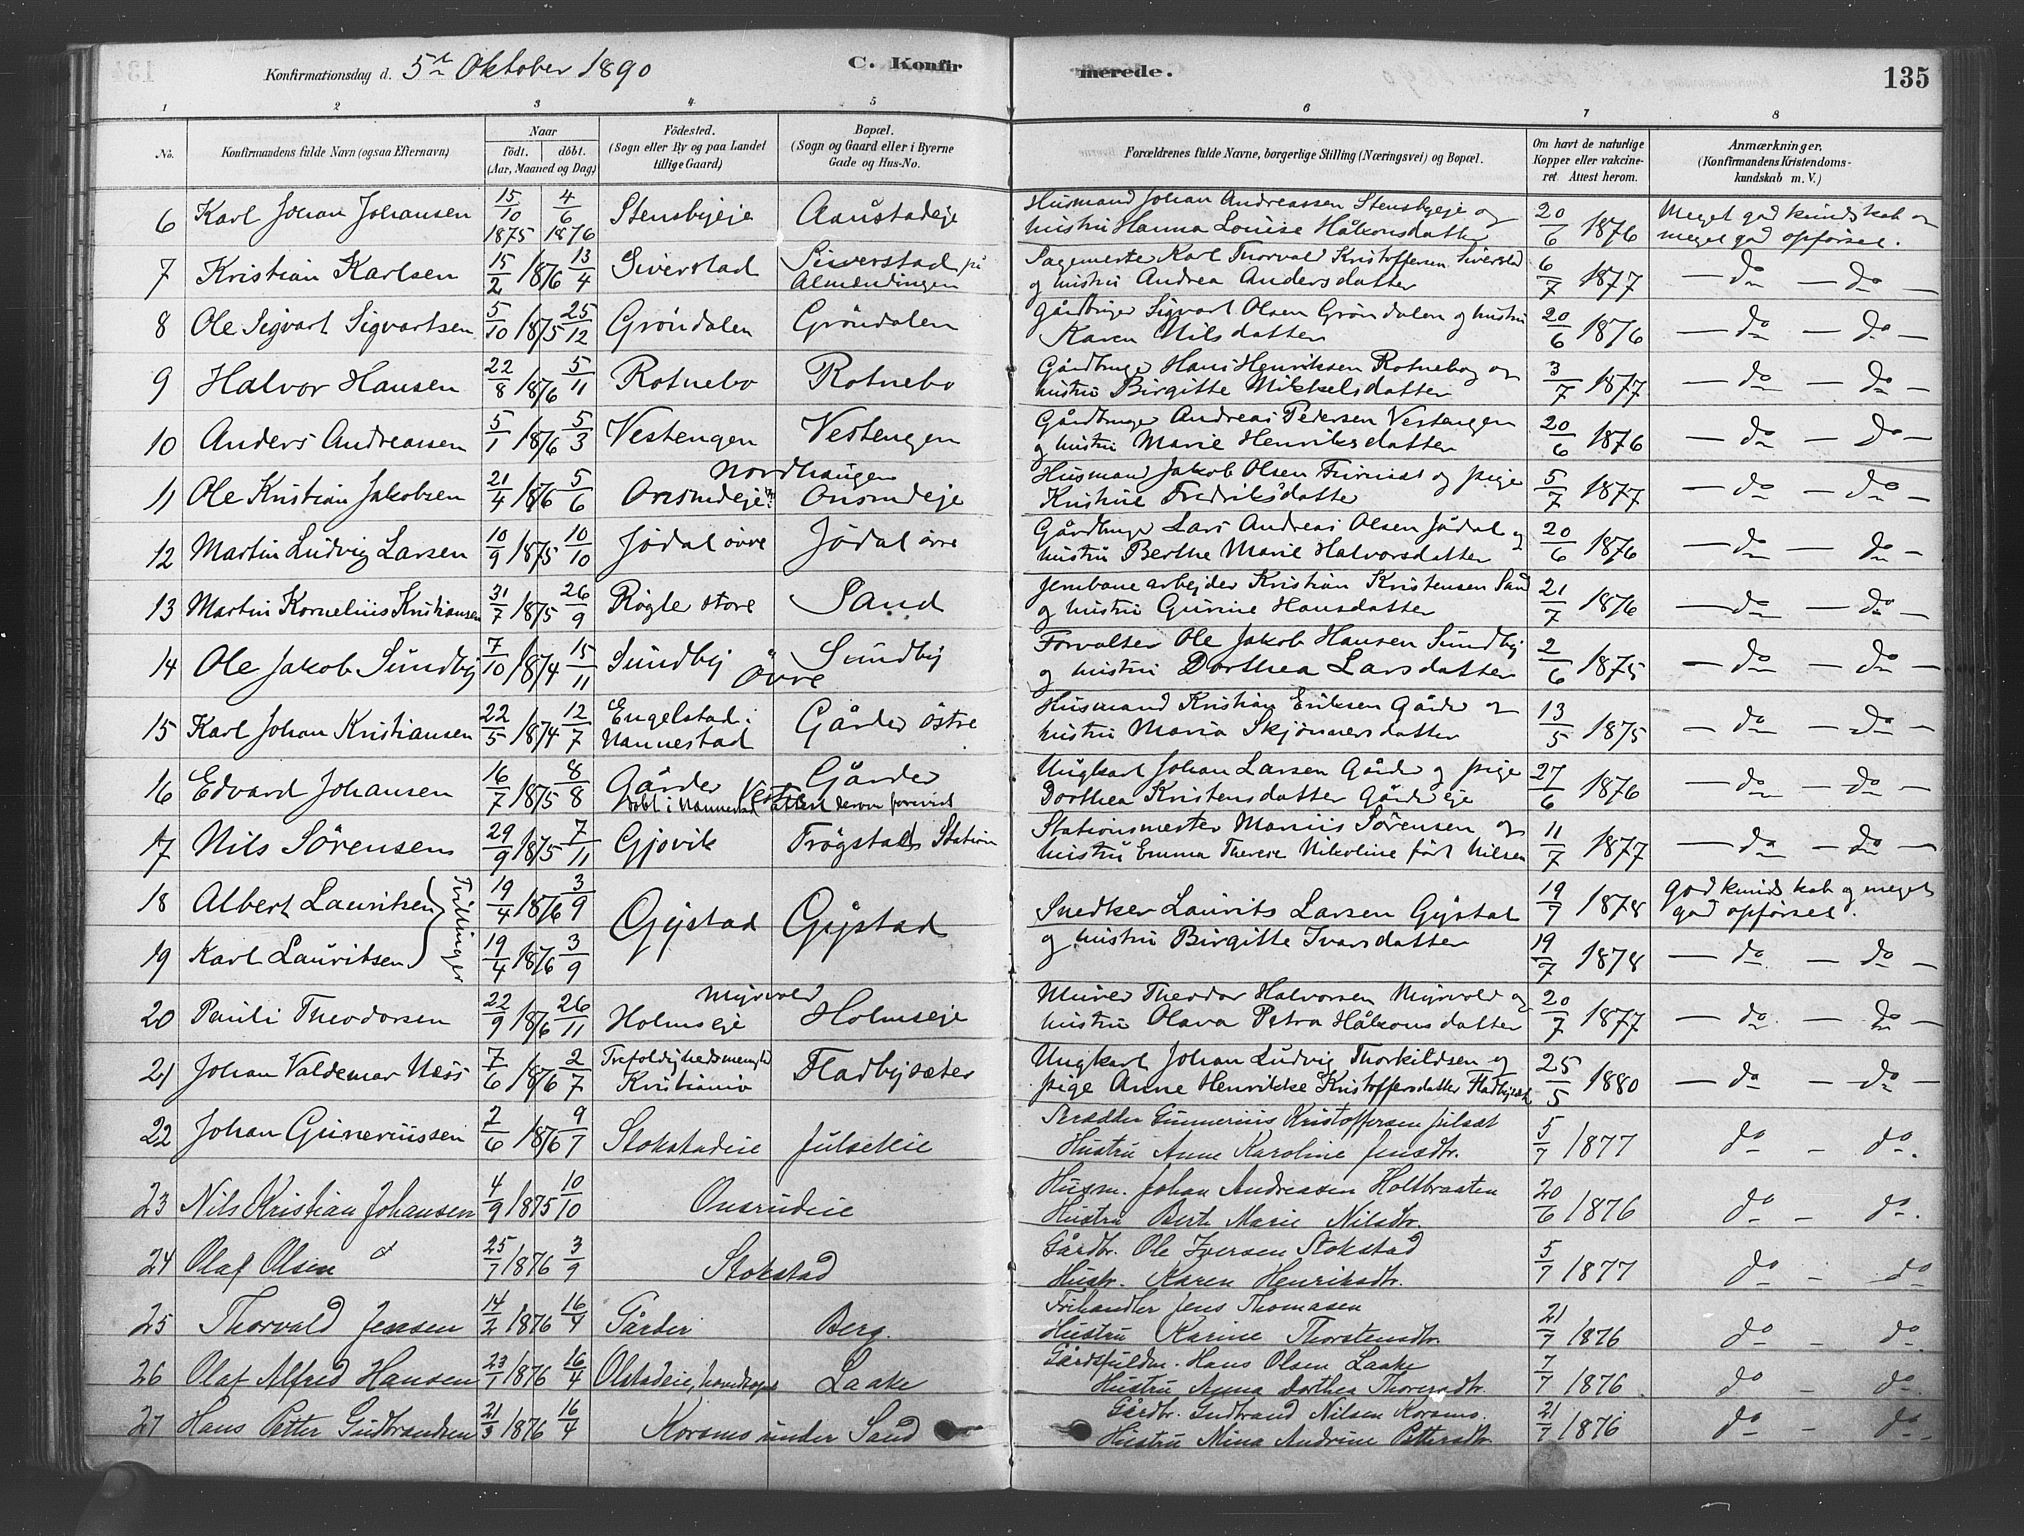 Konfirmationsdag d. 5te Oktober 1890 C. Konfirmerede. 135
1 2 3 4 5 6 7 8
No. Konfirmandens fulde Navn (ogsaa Efternavn) Naar født. døbt. (Aar, Maaned og Dag) Fødested. (Sogn eller By og paa Landet tillige Gaard) Bopæl. (Sogn og Gaard eller i Byerne Gade og Hus-No. Forældrenes fulde Navne, borgerlige Stilling (Næringsvei) og Bopæl. Om havt de naturlige Kopper eller vakcineret Attest herom. Anmærkninger. (Konfirmandens Kristendomskundskab m. V.)
6 Karl Johan Johansen 15/10 1875 4/6 1876 Stensbyeje Aaustadeje Husmand Johan Andreassen Stensbyeje og hustru Hanna Louise Håkonsdatter 20/6 1876 Meget god kundskab og meget god opførsel.
7 Kristian Karlsen 15/2 1876 13/4 Siverstad Siverstad på Almendingen Sagmester Karl Thorvald Kristoffersen Siverstad og hustru Andrea Andersdatter 6/7 1877 — do — do —
8 Ole Sigvart Sigvartsen 5/10 1875 25/12 Grøndalen Grøndalen Gårdbruger Sigvart Olsen Grøndalen og hustru Karen Nilsdatter 20/6 1876 — do — do —
9 Halvor Hansen 22/8 1876 5/11 Rotnebo Rotnebo Gårdbruger Hans Henriksen Rotnebo og hustru Birgitte Mikkelsdatter 3/7 1877 — do — do —
10 Anders Andreassen 5/1 1876 5/3 Vestengen Vestengen Gårdbruger Andreas Pedersen Vestengen og hustru Marie Henriksdatter 20/6 1876 — do — do —
11 Ole Kristian Jakobsen 21/4 1876 5/6 Nordhaugen Onsrudeje Onsrudeje Husmand Jakob Olsen og pige Kristine Fredriksdatter 5/7 1877 — do — do —
12 Martin Ludvig Larsen 10/9 1875 10/10 Jødal øvre Jødal øvre Gårdbruger Lars Andreas Olsen Jødal og hustru Berthe Marie Halvorsdatter 20/6 1876 — do — do —
13 Martin Kornelius Kristiansen 31/7 1875 26/9 Røgle store Sand Jernbanearbejder Kristian Kristensen Sand og hustru Gurine Hansdatter 21/7 1876 — do — do —
14 Ole Jakob Sundby 7/10 1874 15/11 Sundby Øvre Sundby Forvalter Ole Jakob Hansen Sundby og hustru Dorthea Larsdatter 2/6 1875 — do — do —
15 Karl Johan Kristiansen 22/5 1874 12/7 Engelstad i Nannestad Gårder østre Husmand Kristian Eriksen Gårder og hustru Maria Skjønnersdatter 13/5 1875 — do — do —
16 Edvard Johansen 16/7 1875 8/8 Gårder Vestre Gårder døbt i Nannestad attest derom forevist Ungkarl Johan Larsen Gårder og pige Dorthea Kristensdatter Gårdereje 27/6 1876 — do — do —
17 Nils Sørensen 29/9 1875 7/11 Gjøvik Trøgstads Station Stationsmester Marius Sørensen og hustru Emma Therese Nikoline født Nilsen 11/7 1877 — do — do —
18 Albert Lauritsen Tvillinger 19/4 1876 3/9 Gystad Gystad Snedker Laurits Larsen Gystad og hustru Birgitte Ivarsdatter 19/7 1878 God kundskab og meget god opførsel.
19 Karl Lauritsen 19/4 1876 3/9 19/7 1878 — do — do —
20 Pauli Theodorsen 22/9 1876 26/11 Myrvold Holmseje Holmseje Murer Theodor Halvorsen Myrvold og hustru Olava Petra Håkonsdatter 20/7 1877 — do — do —
21 Johan Valdemar Næss 7/6 1876 2/7 Trefoldighedsmenighd Kristiania Fladbysæter Ungkarl Johan Ludvig Thorkildsen og pige Anne Henrikke Kristoffersdatter Fladbysæt. 25/5 1880 — do — do —
22 Johan Guneriussen 2/6 1876 9/7 Stokstadeie Julseteie Gunnerius Kristoffersen Julset Hustru Anne Karoline Jensdtr. 5/7 1877 do - do.
23 Nils Kristian Johansen 4/9 1875 10/10 Onsrudeie Husm. Johan Andreasen Holtbraaten Hustru Berte Marie Nilsdtr. 20/6 1876 do - do.
24 Olaf Olsen 25/7 1876 3/9 Stokstad Gårdbr. Ole Iversen Stokstad Hustr. Karen Henriksdtr. 5/7 1877 do - do
25 Thorvald Jensen 14/2 1876 16/4 Gårder Berg. Frihandler Jens Thomasen Hustru Karine Thorstensdtr. 21/7 1876 do - do.
26 Olaf Alfred Hansen 23/1 1876 16/4 Olstadeie, Laake Gårdsfuldm. Hans Olsen Laake Hustru Anna Dorthea Thoresdtr. 7/7 1876 do - do.
27 Hans Petter Gudbrandsen 21/3 1876 16/4 Korsmo under Sand Gårdbr. Gudbrand Nilsen Korsmo. Hustru Mina Andrine Pettersdtr. 21/7 1876 do - do -